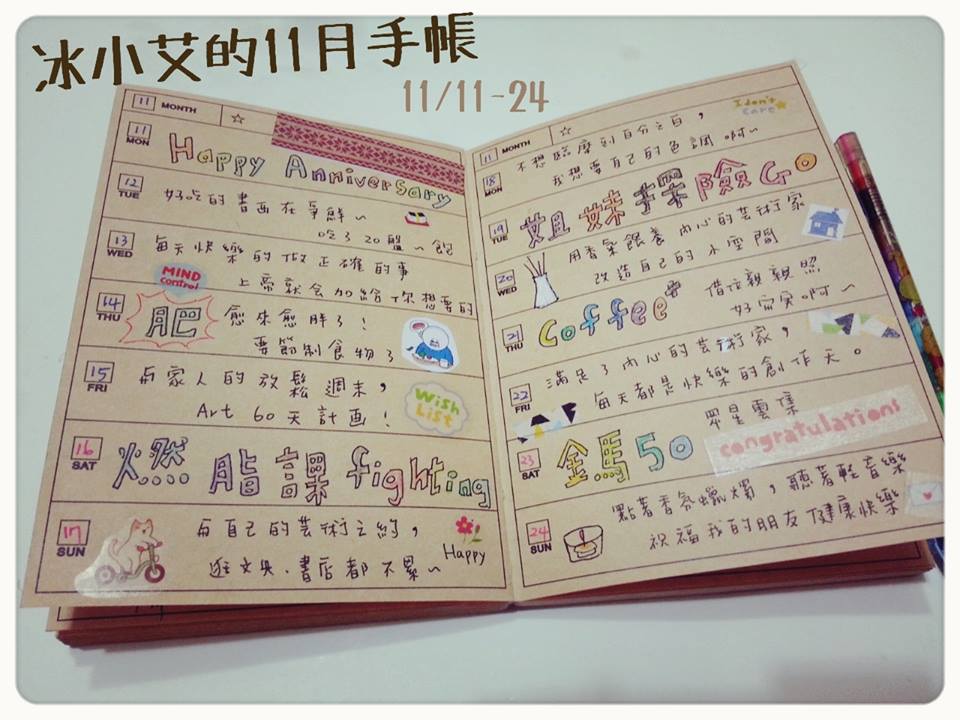 冰小艾的11月手帳
11/11-24
11 MONTH ☆
11 MON Happy Anniversary
12 TUE 好吃的書画在爭鮮～
吃了20盤～飽
13 WED 每天快樂的做正確的事
上帝就会加給你想要的
MIND control
14 THU 肥 愈來愈胖了！
要節制食物了
15 FRI 与家人的放鬆週末，
Art 60天計画！
Wish List
16 SAT 燃脂課 fighting
17 SUN 与自己的芸術之約，
逛文具．書店都不累～
Happy
11 MONTH ☆
I don't care
18 MON 不想臨摩到百分之百，
我想要自己的色調啊～
19 TUE 姐妹探險Go
20 WED 用香氣餵養內心的芸術家
改造自己的小空間
21 THU Coffee 借位親親照
好甯実啊～
22 FRI 滿足了內心的芸術家，
每天都是快樂的創作天。
23 SAT 金馬50 眾星雲集
congratulations
24 SUN 點著香氛蠟燭，聽著輕音樂
祝福我的朋友健康快樂